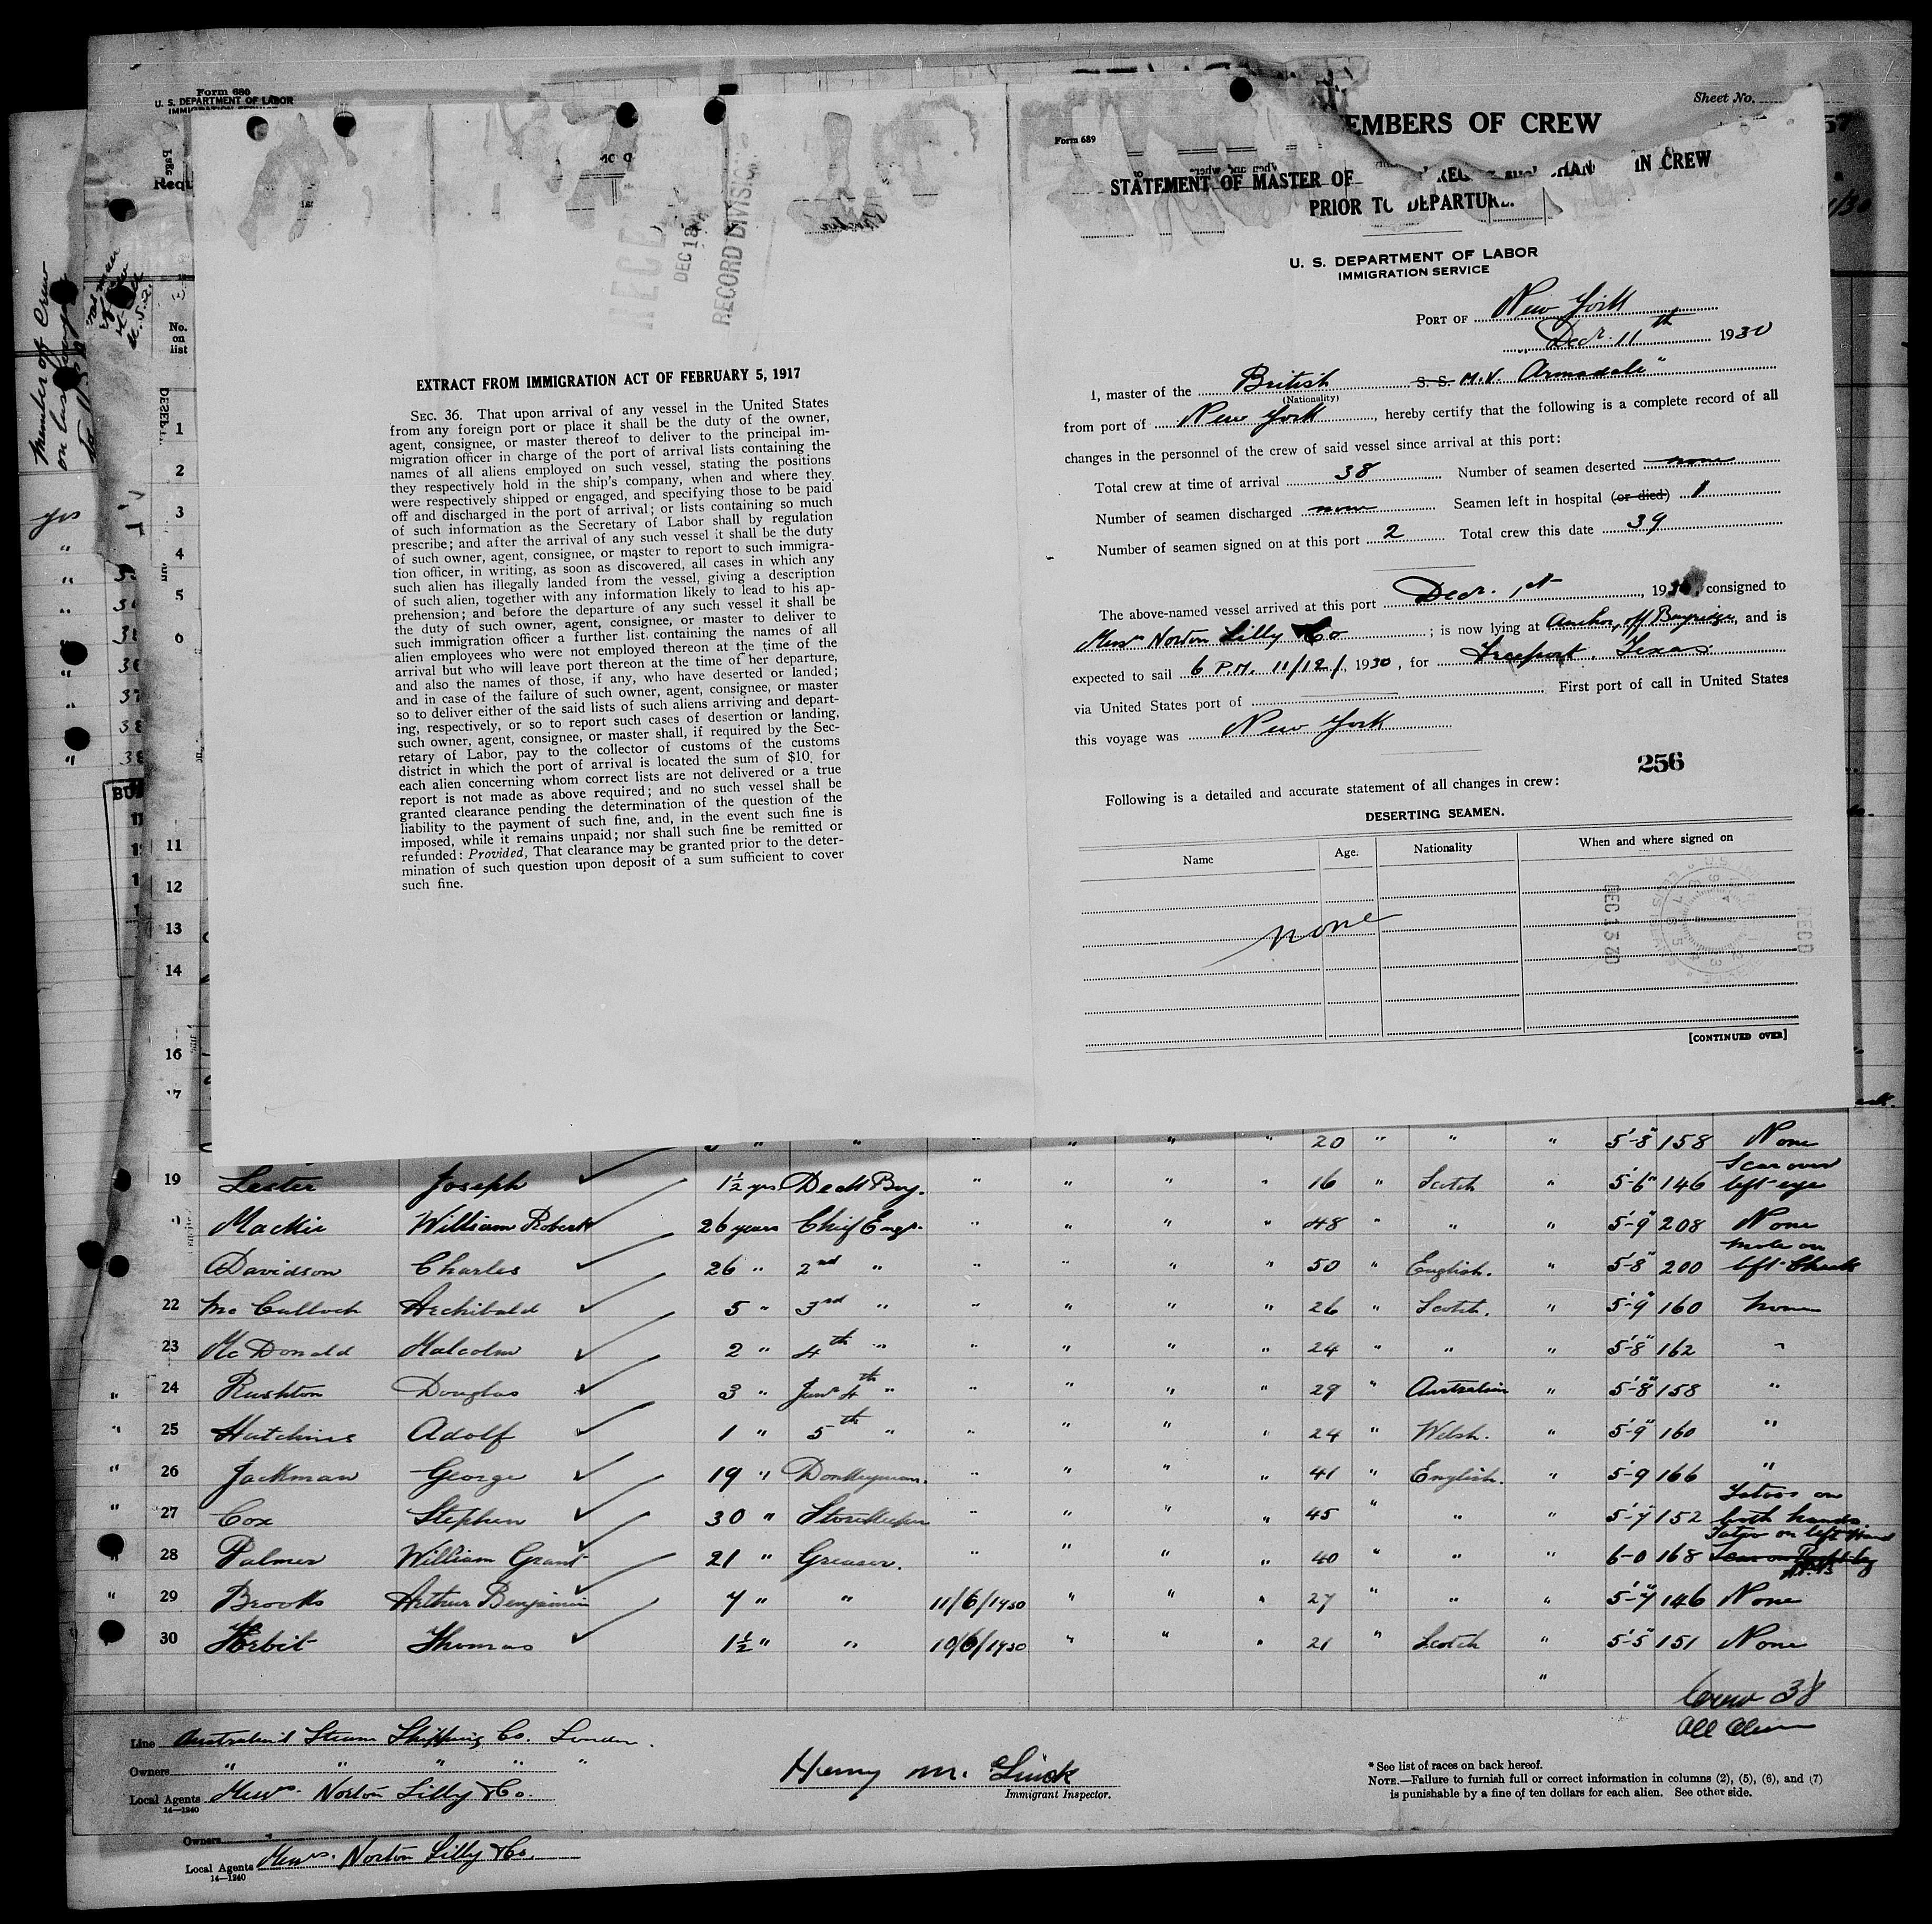 Form 680
U. S. DEPARTMENT OF LABOR
Sheet No.
EMBERS OF CREW
No. on list
RECORD DIVISION
DEC 18
EXTRACT FROM IMMIGRATION ACT OF FEBRUARY 5, 1917
SEC. 36. That upon arrival of any vessel in the United States
from any foreign port or place it shall be the duty of the owner,
agent, consignee, or master thereof to deliver to the principal im-
migration officer in charge of the port of arrival lists containing the
names of all aliens employed on such vessel, stating the positions
they respectively hold in the ship's company, when and where they
were respectively shipped or engaged, and specifying those to be paid
off and discharged in the port of arrival; or lists containing so much
of such information as the Secretary of Labor shall by regulation
prescribe; and after the arrival of any such vessel it shall be the duty
of such owner, agent, consignee, or master to report to such immigra-
tion officer, in writing, as soon as discovered, all cases in which any
such alien has illegally landed from the vessel, giving a description
of such alien, together with any information likely to lead to his ap-
prehension; and before the departure of any such vessel it shall be
the duty of such owner, agent, consignee, or master to deliver to
such immigration officer a further list containing the names of all
alien employees who were not employed thereon at the time of the
arrival but who will leave port thereon at the time of her departure,
and also the names of those, if any, who have deserted or landed;
and in case of the failure of such owner, agent, consignee, or master
so to deliver either of the said lists of such aliens arriving and depart-
ing, respectively, or so to report such cases of desertion or landing,
such owner, agent, consignee, or master shall, if required by the Sec-
retary of Labor, pay to the collector of customs of the customs
district in which the port of arrival is located the sum of $10 for
each alien concerning whom correct lists are not delivered or a true
report is not made as above required; and no such vessel shall be
granted clearance pending the determination of the question of the
liability to the payment of such fine, and, in the event such fine is
imposed, while it remains unpaid; nor shall such fine be remitted or
refunded: Provided, That clearance may be granted prior to the deter-
mination of such question upon deposit of a sum sufficient to cover
such fine.
Form 689
STATEMENT OF MASTER OF IN CREW
PRIOR TO DEPARTURE.
U. S. DEPARTMENT OF LABOR
IMMIGRATION SERVICE
PORT OF New York
Decr. 11th 1930
I, master of the British S. S. M.V. Armadale"
(Nationality)
from port of New York, hereby certify that the following is a complete record of all
changes in the personnel of the crew of said vessel since arrival at this port:
Total crew at time of arrival 38 Number of seamen deserted none
Number of seamen discharged none Seamen left in hospital (or died) 1
Number of seamen signed on at this port 2 Total crew this date 39
The above-named vessel arrived at this port Decr. 1st, 1930, consigned to
Messrs Norton Lilly & Co; is now lying at Anchor, off Bayridge, and is
expected to sail 6 P.M. 11/12/, 1930, for Freeport, Texas.
via United States port of First port of call in United States
this voyage was New York
256
Following is a detailed and accurate statement of all changes in crew:
DESERTING SEAMEN.
Name Age. Nationality When and where signed on
none
DEC 13 30
RECD
[CONTINUED OVER]
" " " " " " 20 " " " 5'-8" 158 None
19 Lester Joseph 1½ yrs Deck Boy. " " " " 16 " Scotch " 5'-6" 146 Scar over left eye
Mackie William Robert 26 years Chief Engr. " " " " 48 " " " 5'-9" 208 None
Davidson Charles 26 " 2nd " " " " " 50 " English. " 5'-8" 200 mole on left Cheek
22 Mc Culloch Archibald 5 " 3rd " " " " " 26 " Scotch. " 5'-9" 160 none
23 McDonald Malcolm 2 " 4th " " " " " 24 " " " 5'-8" 162 "
" 24 Rushton Douglas 3 " Junr 4th " " " " " 29 " Australian " 5'-8" 158 "
" 25 Hutchins Adolf 1 " 5th " " " " " 24 " Welsh. " 5'-9" 160 "
" 26 Jackman George 19 " Donkeyman. " " " " 41 " English. " 5'-9 166 "
" 27 Cox Stephen 30 " Storekeeper " " " " 45 " " " 5'-7" 152 Tatoos on both hands.
" 28 Palmer William Grant 21 " Greaser. " " " " 40 " " " 6-0 168 Tatoo on left Hand
" 29 Brooks Arthur Benjamin 7 " " 11/6/1930 " " " 27 " " " 5'-7" 146 None
" 30 Herbit Thomas 1½ " " 10/6/1930 " " " 21 " Scotch " 5'-5" 151 None
"
Crew 38
All Alien
Line Australind Steam Shipping Co. London.
Owners " " " " "
Local Agents Messrs. Norton Lilly & Co.
14—1240
Henry M. Linck
Immigrant Inspector.
* See list of races on back hereof.
NOTE.—Failure to furnish full or correct information in columns (2), (5), (6), and (7)
is punishable by a fine of ten dollars for each alien. See other side.
Owners
Local Agents Messrs. Norton Lilly & Co.
14—1240